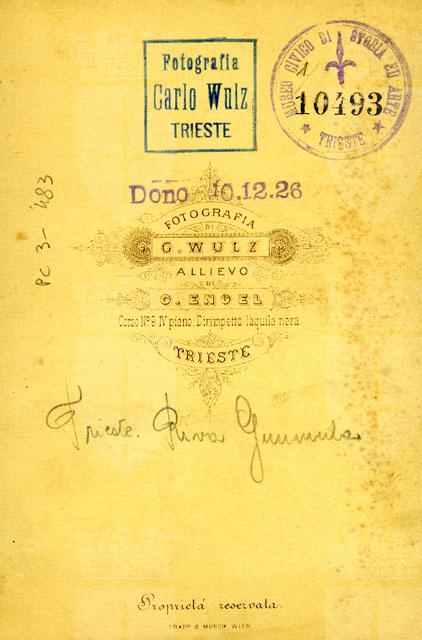 Fotografia
Carlo Wulz
TRIESTE
MUSEO CIVICO DI STORIA ED ARTE
10493
TRIESTE
Dono 10.12.26
PC 3-483
FOTOGRAFIA
DI
G. WULZ
ALLIEVO
DI
G. ENGEL
Corso No 9 IV piano, Dirimpetto l'aquila nera
TRIESTE
Trieste. Riva Grumula
Proprietá reservata.
TRAPP & MÜNCH, WIEN